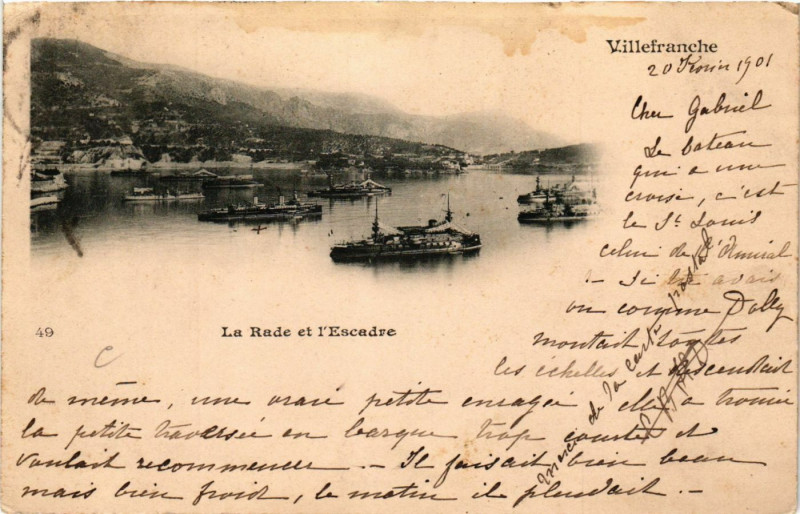 Villefranche
20 Février 1901
Cher Gabriel
Le bateau
qui a une
croix, c'est
le St Louis
celui de l'Amiral
- Si tu avais
vu comme Dolly
montait toutes
les échelles et descendait
de même, une vraie petite enragée elle a trouvé
la petite traversée en barque trop courte et
voulait recommencer. - Il faisait bien beau
mais bien froid, le matin il pleuvait. -
merci de la carte postale
49
La Rade et l'Escadre